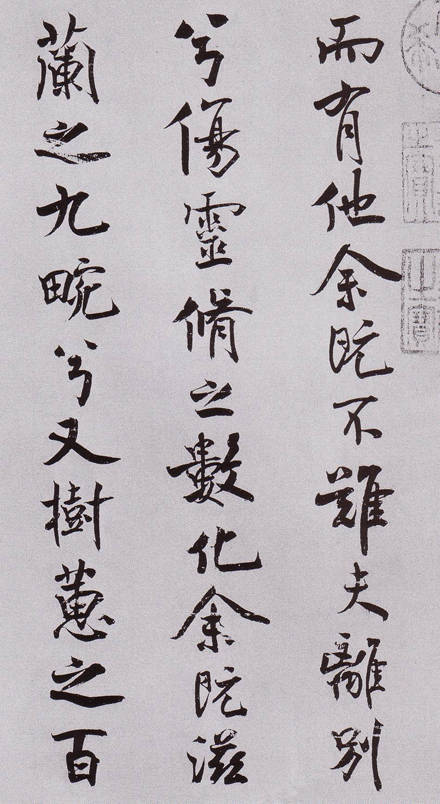 而有他余既不難夫離別
兮傷靈脩之數化余既滋
蘭之九畹兮又樹蕙之百